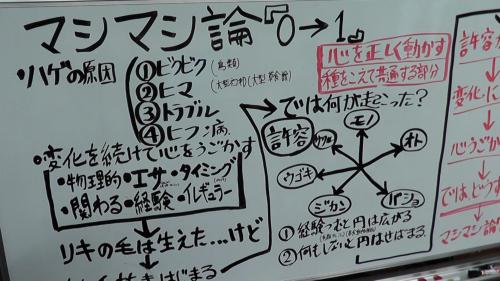 マシマシ論『0→1』
心を正しく動かす
種をこえて共通する部分
リハゲの原因
①ビクビク(鳥類)
②ヒマ(大型幻ヤ)(大型草食獣)
③トラブル
④ヒフ病
・変化を続けて心をうごかす
・物理的・エサ・タイミング
・関わる・経験・イレギュラー
リキの毛は生えた…けど
はじまる
では何が起こった?
許容
モノ
オト
バショ
ジカン
ウゴキ
①経験つむと円は広がる
②何もしないと円はせばまる
許容
変化に
心うごか
では、どう
マシマシ論